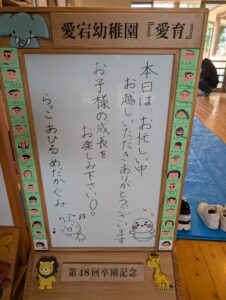 愛宕幼稚園『愛育』
本日は お忙しい中
お越しいただきありがとうございます
お子様の成長を
お楽しみ下さい♡。
らっこ あひる めだかぐみ
第48回卒園記念